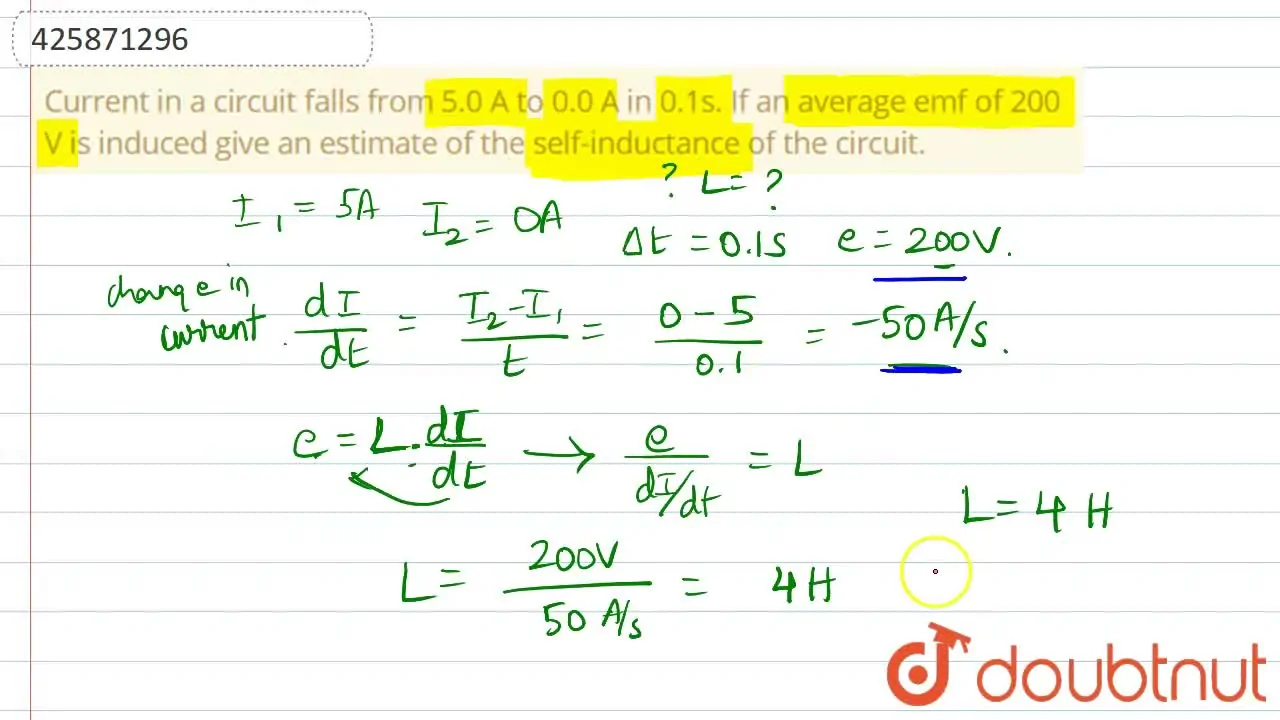 425871296
Current in a circuit falls from 5.0 A to 0.0 A in 0.1s. If an average emf of 200
V is induced give an estimate of the self-inductance of the circuit.
? L = ?
I₁ = 5A I₂ = 0A Δt = 0.1s e = 200V.
change in current dI/dt = I₂-I₁/t = 0-5/0.1 = -50A/s.
e = L·dI/dt → e/dI/dt = L
L = 4 H
L = 200V/50 A/s = 4H
doubtnut